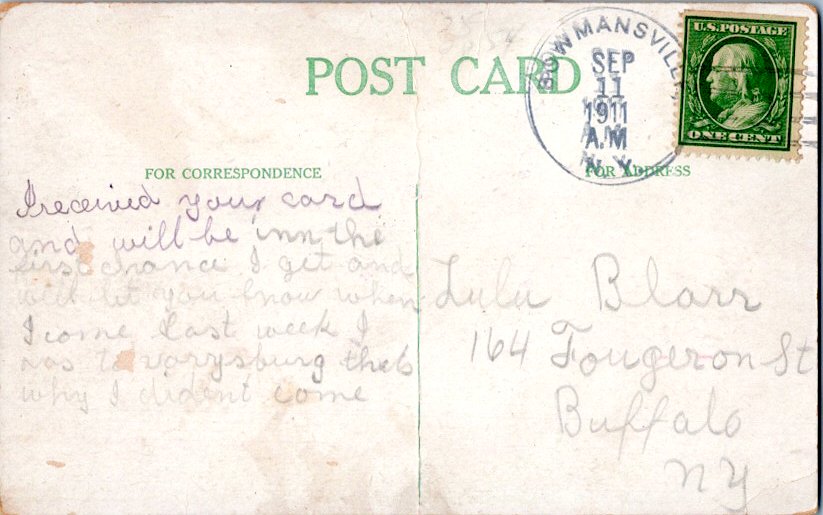 3554
POST CARD
BOWMANSVILLE
SEP
11
1911
A.M
N.Y.
U.S. POSTAGE
ONE CENT
FOR CORRESPONDENCE
FOR ADDRESS
I received your card
and will be inn the
first chance I get and
will let you know when
I come Last week I
was to varysburg thats
why I dident come
Lulu Blarr
164 Fougeron St
Buffalo
NY